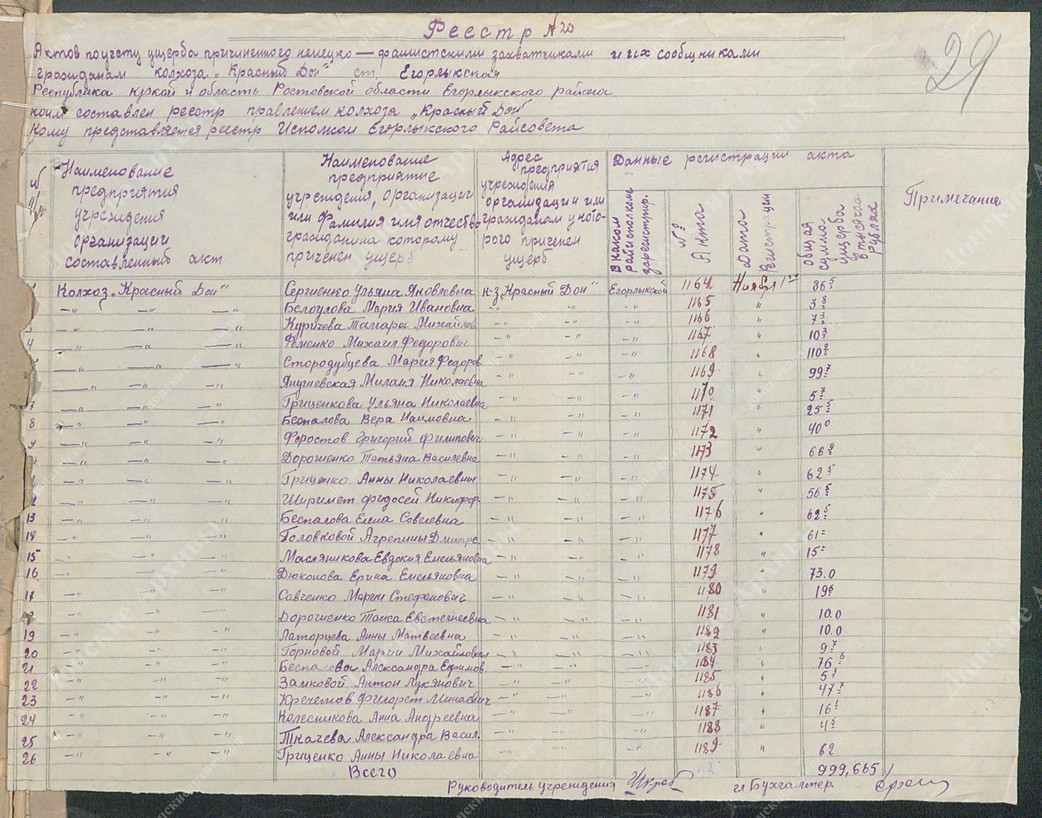 Реестр №20
29
Актов по учету ущерба причинетого немецко — фашистскими захватчиками и их сообщниками
гражданам колхоза „Красный Дон" ст. Егорлыкская
Республика край и область Ростовской области Егорлыкского района
коим составлен реестр правлением колхоза „Красный Дон"
Кому представляется реестр Исполком Егорлыкского Райсовета
№ п/п Наименование предприятия учреждения организации составлений акт
Наименование предприятие учреждения, организации или Фамилия имя отчество гражданина которому приченен ущерб
Адрес предприятия учреждения организации или гражданам у которого приченен ущерб
Данные регистрации акта
В каком райисполкоме зарегистрир.
№ Акта
Дата Регистрации
общая сумма ущерба в тысячах рублях
Примечание
Колхоз „Красный Дон" Сергиенко Ульяна Яковлевна к-з „Красный Дон" Егорлыкской 1164 Ноября 86
—"— —"— Белоулова Мария Ивановна —"— —"— 1165 " 3
—"— —"— Куричева Тамара Михайлов —"— —"— 1166 " 7
4 —"— —"— Фоменко Михаил Федорович —"— —"— 1167 " 10
—"— —"— Стородубцева Мария Федоров —"— —"— 1168 " 110
—"— —"— Милания Николаевна —"— —"— 1169 " 99
7 —"— —"— Гриценкова Ульяна Николаевна —"— —"— 1170 " 5
8 —"— —"— Беспалова Вера Наумовна —"— —"— 1171 " 25
9 —"— —"— Форостов Григорий Филипович —"— —"— 1172 " 40
—"— —"— Дорошенко Татьяна Василевна —"— —"— 1173 " 66
—"— —"— Гриценко Анны Николаевны —"— —"— 1174 " 62
—"— —"— Ширимет Федосей Никифор. —"— —"— 1175 " 56
13 —"— —"— Беспалова Елена Савелевна —"— —"— 1176 " 62
14 —"— —"— Головковой Агрепины Дмитре —"— —"— 1177 " 61
15 —"— —"— Масляникова Евдокия Емельяновна —"— —"— 1178 " 15
16 —"— —"— Дюконова Ерина Емельяновна —"— —"— 1179 " 73.0
17 —"— —"— Савченко Мартин Стефанович —"— —"— 1180 " 19
—"— —"— Дорошенко Таиса Евстегнеевна —"— —"— 1181 " 10.0
19 —"— —"— Латорцева Анны Матвеевна —"— —"— 1182 " 10.0
20 —"— —"— Горновой Марии Михайловны —"— —"— 1183 " 9
21 —"— —"— Беспалова Александра Ефимов. —"— —"— 1184 " 76
22 —"— —"— Замковой Антон Лукянович —"— —"— 1185 " 5
23 —"— —"— Кречетов Филорет Минаевич —"— —"— 1186 " 47
24 —"— —"— Колесникова Анна Андреевна —"— —"— 1187 " 16
25 —"— —"— Ткачева Александра Васил. —"— —"— 1188 " 4
26 —"— —"— Гриценко Анны Николаевна —"— —"— 1189 " 62
Всего 999,665
Руководитель учреждения гл Бухгалтер.